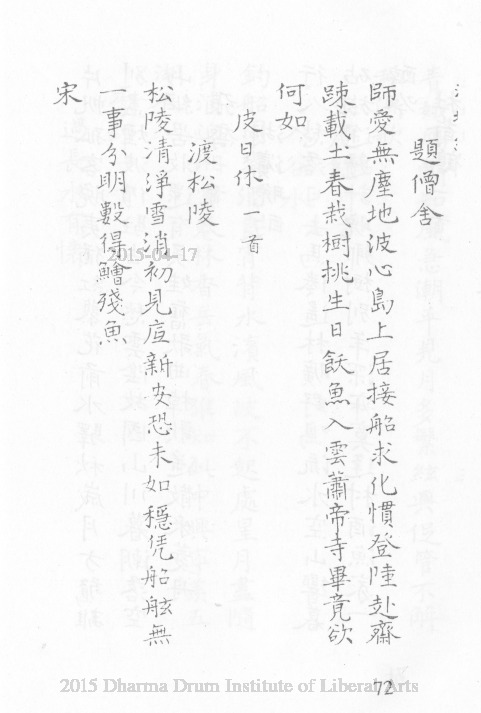 題僧舍
師愛無塵地波心島上居接船求化慣登陸赴齋
踈載土春栽樹挑生日飯魚入雲蕭帝寺畢竟欲
何如
皮日休一首
渡松陵
松陵清淨雪消初見底新安恐未如穩凭船舷無
一事分明數得鱠殘魚
宋
2015-04-17
2015 Dharma Drum Institute of Liberal Arts
72